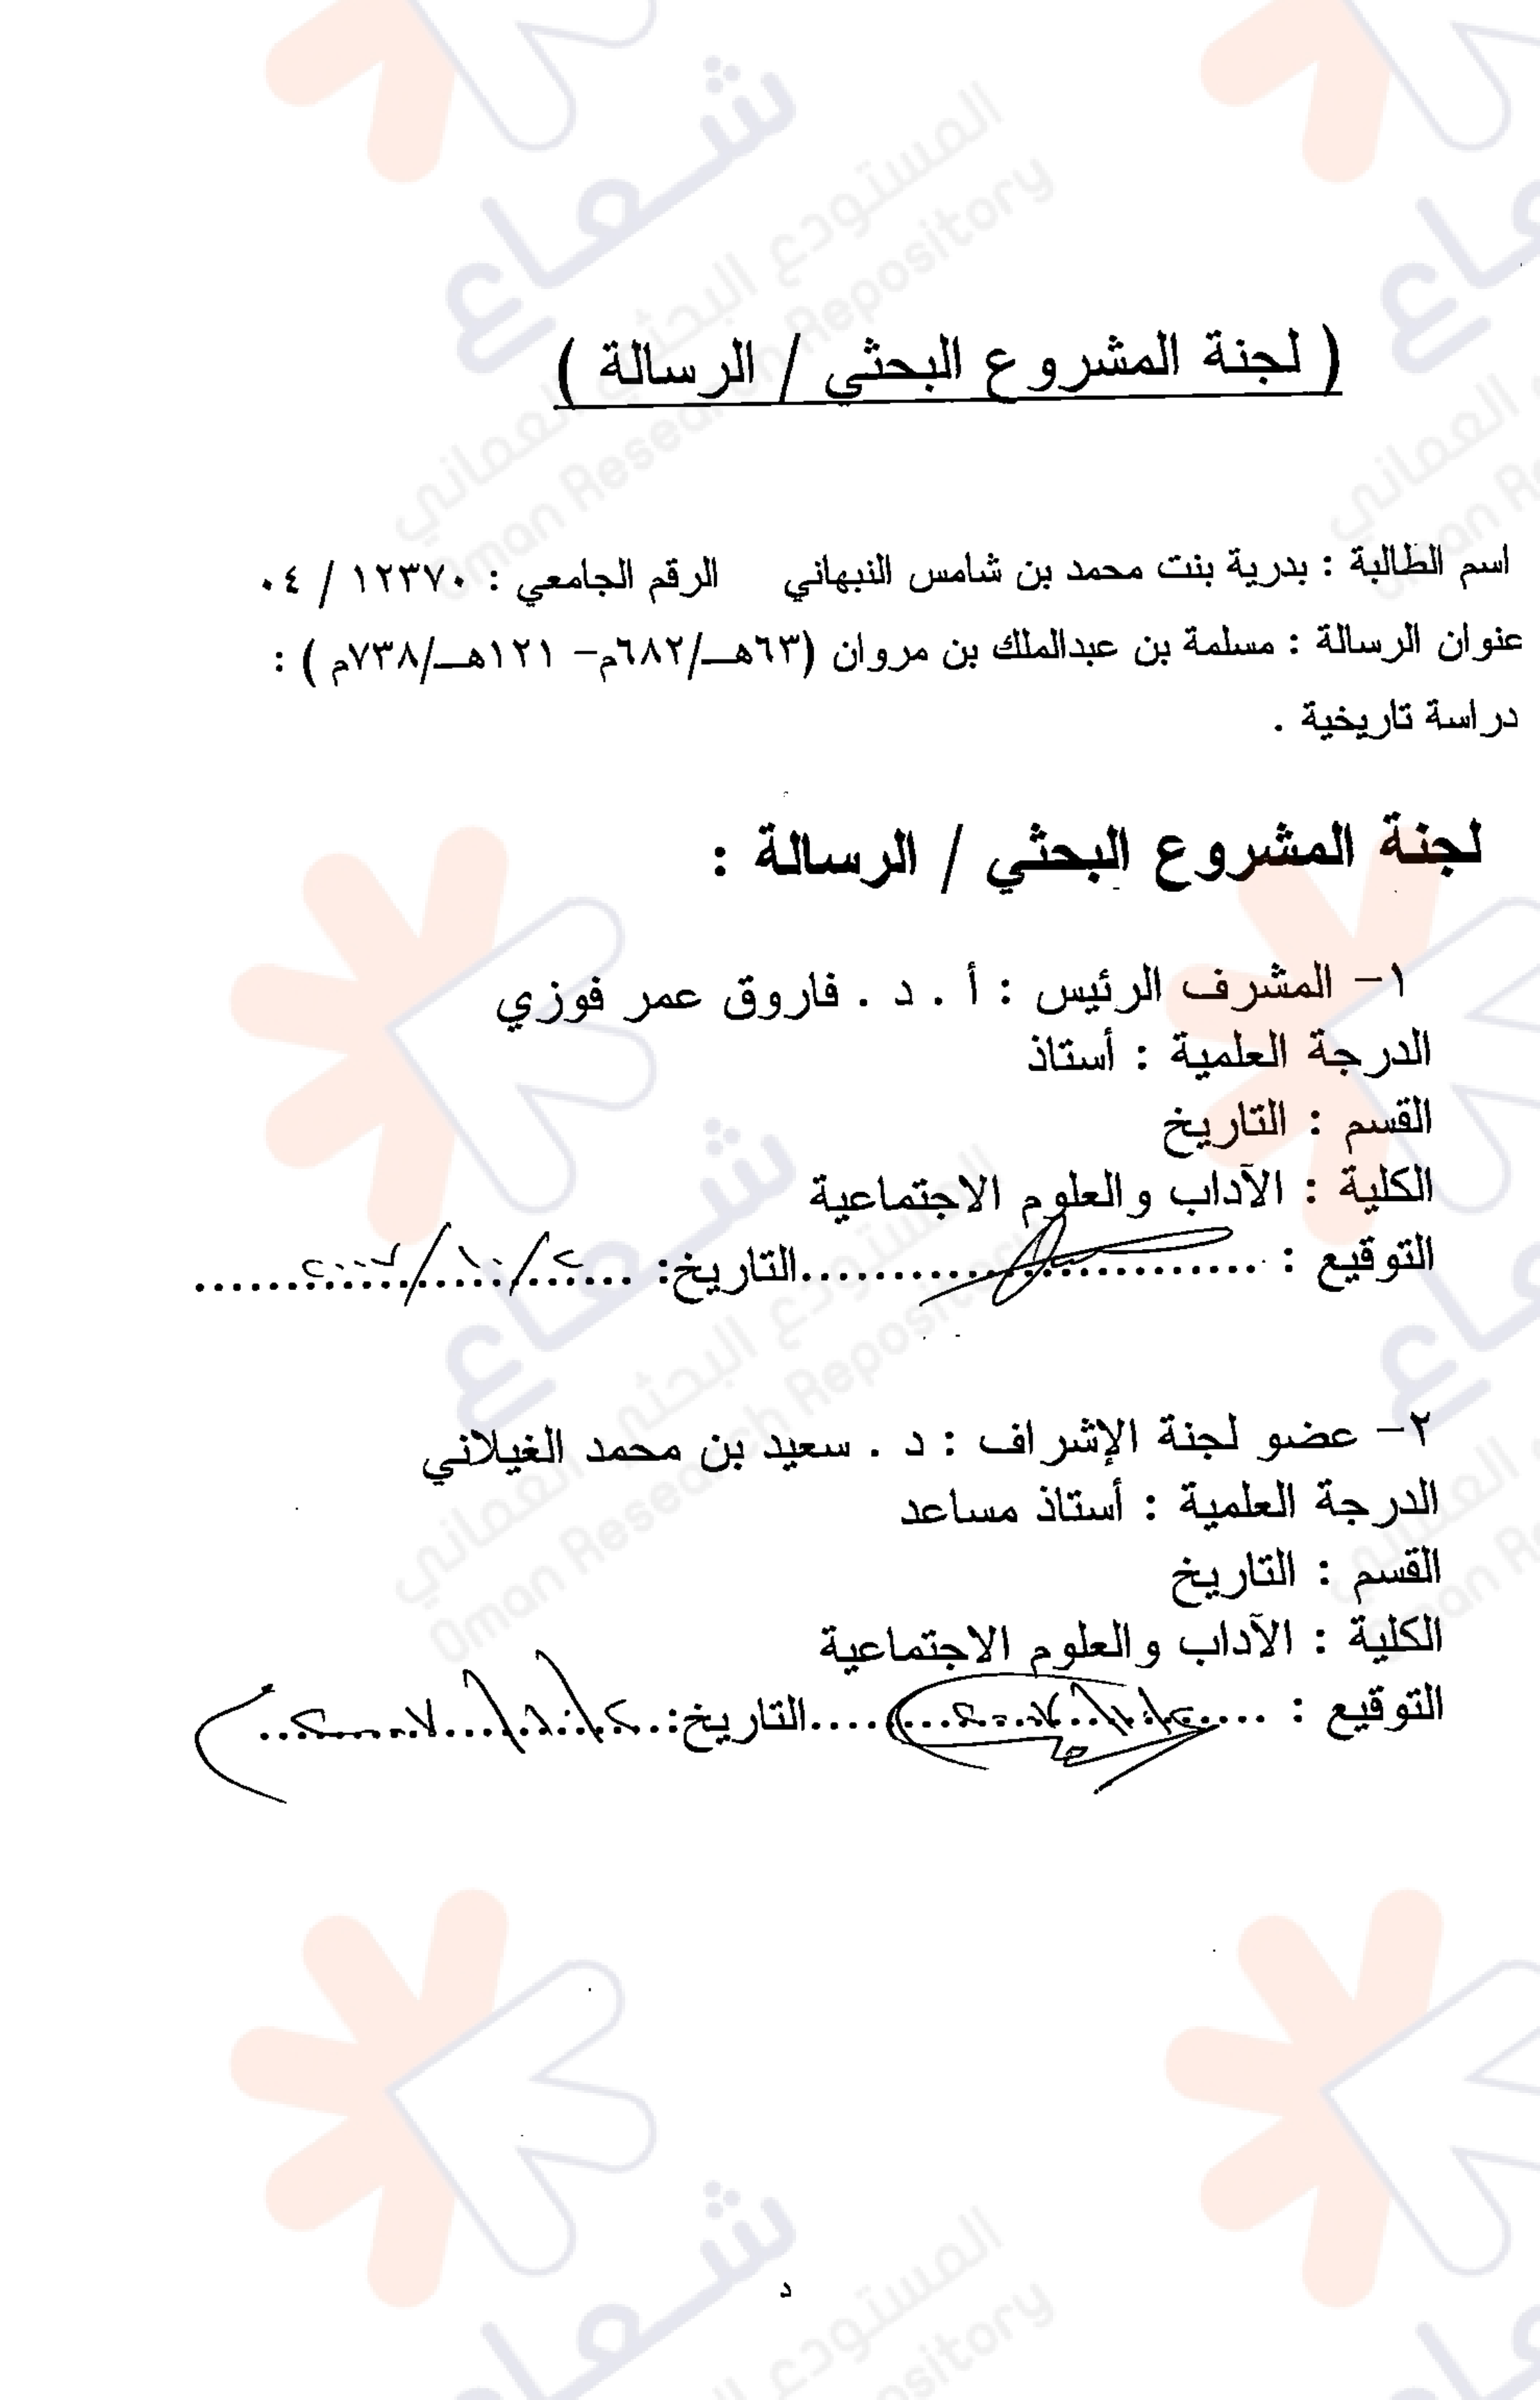 ( لجنة المشروع البحثي / الرسالة )
اسم الطالبة : بدرية بنت محمد بن شامس النبهاني الرقم الجامعي : ١٢٣٧٠ / ٠٤
عنوان الرسالة : مسلمة بن عبدالملك بن مروان (٦٣هـ/٦٨٢م- ١٢١هـ/٧٣٨م ) :
دراسة تاريخية .
لجنة المشروع البحثي / الرسالة :
١- المشرف الرئيس : أ . د . فاروق عمر فوزي
الدرجة العلمية : أستاذ
القسم : التاريخ
الكلية : الآداب والعلوم الاجتماعية
التوقيع : ..........................التاريخ: ٢/١٠/٢٠٠٧
٢- عضو لجنة الإشراف : د . سعيد بن محمد الغيلاني
الدرجة العلمية : أستاذ مساعد
القسم : التاريخ
الكلية : الآداب والعلوم الاجتماعية
التوقيع : ..........................التاريخ:
د
شعاع
المستودع البحثي العماني
Oman Research Repository